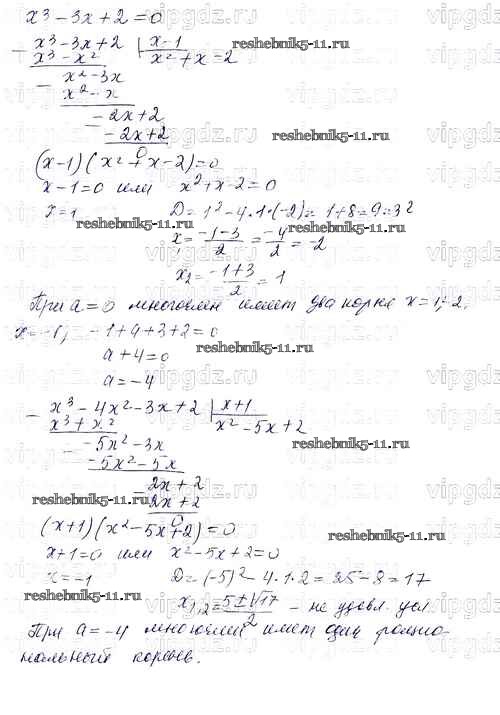 x³ - 3x + 2 = 0
x³ - 3x + 2 | x - 1
x³ - x² x² + x = 2
reshebnik5-11.ru
x² - 3x
x² - x
- 2x + 2
- 2x + 2
reshebnik5-11.ru
0
(x-1)(x² + x - 2) = 0
x - 1 = 0 или x² + x - 2 = 0
x = 1 D = 1² - 4·1·(-2) = 1 + 8 = 9 = 3²
reshebnik5-11.ru
x = (-1-3)/2 = -4/2 = -2
x₂ = (-1+3)/2 = 1
При a = 0 многочлен имеет два корня x = 1; -2.
x = -1, -1 + a + 3 + 2 = 0
reshebnik5-11.ru
a + 4 = 0
a = -4
x³ - 4x² - 3x + 2 | x + 1
x³ + x² x² - 5x + 2
-5x² - 3x
reshebnik5-11.ru
-5x² - 5x
2x + 2
reshebnik5-11.ru
2x + 2
0
(x+1)(x² - 5x + 2) = 0
reshebnik5-11.ru
x + 1 = 0 или x² - 5x + 2 = 0
x = -1 D = (-5)² - 4·1·2 = 25 - 8 = 17
reshebnik5-11.ru
x₁,₂ = (5±√17)/2 - не удовл. усл.
При a = -4 многочлен имеет один рацио-
нальный корень.
vipgdz.ru